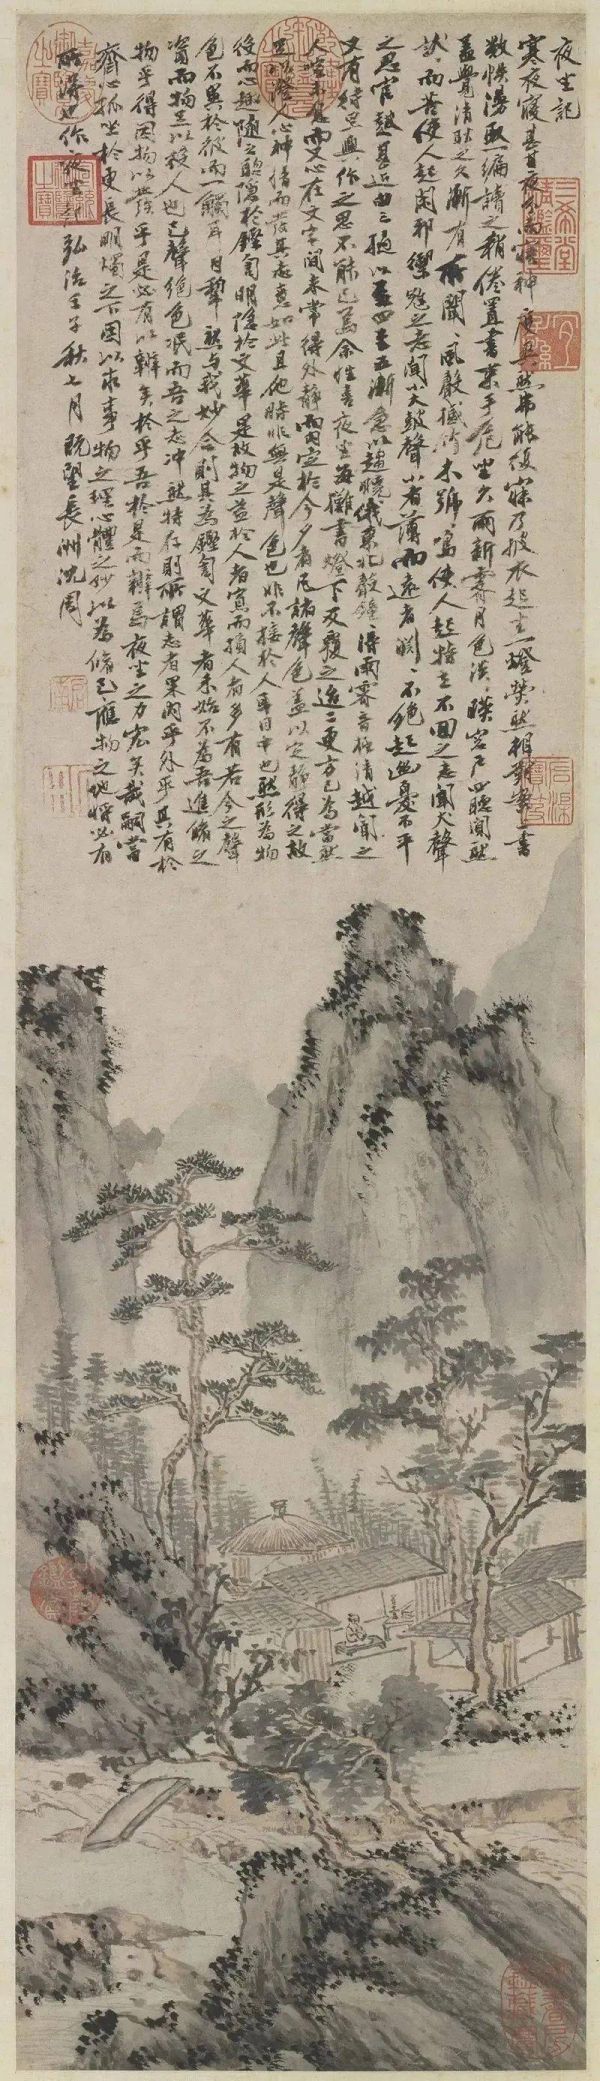 夜坐記
寒夜寢甚甘夜分而寤神度爽然弗能復寐乃披衣起坐一燈熒然相對案上書
數帙漫取一編讀之稍倦置書束手危坐久雨新霽月色淡淡映窗戶四聽闃然
蓋覺清耿之久漸有所聞聞風聲撼竹木號號鳴使人起特立不回之志聞犬聲
狺狺而苦使人起閑邪禦寇之志聞小大鼓聲小者薄而遠者淵淵不絕起幽憂不平
之思官鼓甚近由三撾以至四至五漸急以趨曉俄東北聲鐘鐘得雨霽音極清越聞之
又有待旦興作之思不能已焉余性喜夜坐每攤書燈下反覆之迨二更方已為當然
人喧未息而又心在文字間未常得外靜而內定於今夕者凡諸聲色蓋以定靜得之故
足以澄人心神情而發其志意如此且他時非無是聲色也非不接於人耳目中也然形為物
役而心趣隨之聰隱於鏗訇明隱於文華是故物之益於人者寡而損人者多有若今之聲
色不異於彼而一觸耳目犁然與我妙合則其為鏗訇文華者未始不為吾進修之
資而物足以役人也已聲絕色泯而吾之志沖然特存則所謂志者果內乎外乎其有於
物乎得因物以發乎是必有以辨矣於乎吾於是而辨焉夜坐之力宏矣哉嗣當
齋心孤坐於更長明燭之下因以求事物之理心體之妙以為修己應物之地將必有
所得也作夜坐記弘治壬子秋七月既望長洲沈周
三希堂精鑑璽
宜子孫
石渠寶笈